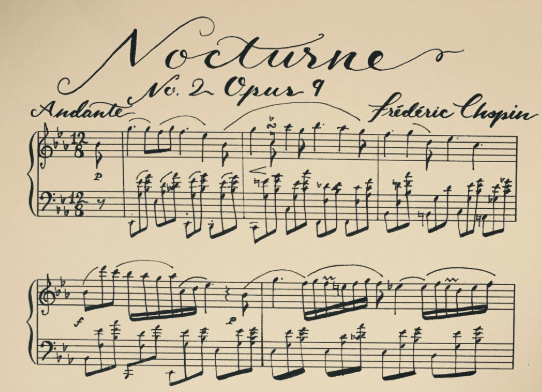 Nocturne
No. 2 Opus 9
Andante Frédéric Chopin
12/8
p
12/8
f p